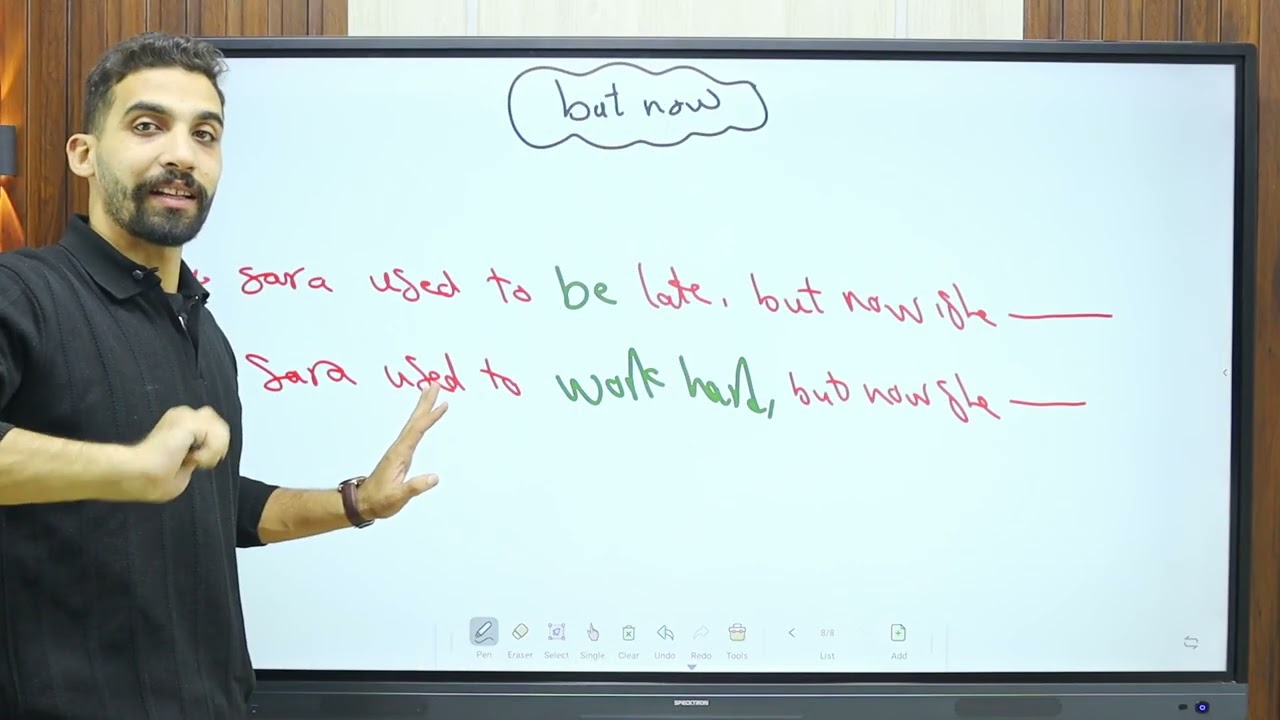 but now
sara used to be late, but now, she
sara used to work hard, but now she
Pen Eraser Select Single Clear Undo Redo Tools 8/8 List Add
SPECKTRON